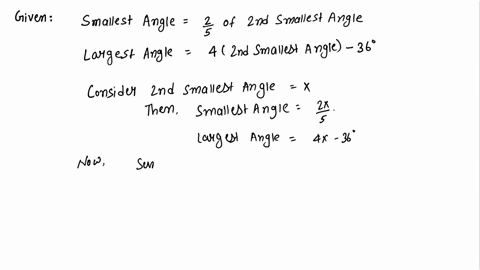 Given: Smallest Angle = 2/5 of 2nd Smallest Angle
Largest Angle = 4 (2nd Smallest Angle) - 36°
Consider 2nd smallest Angle = x
Then, Smallest Angle = 2x/5.
Largest Angle = 4x - 36°
Now, Sum